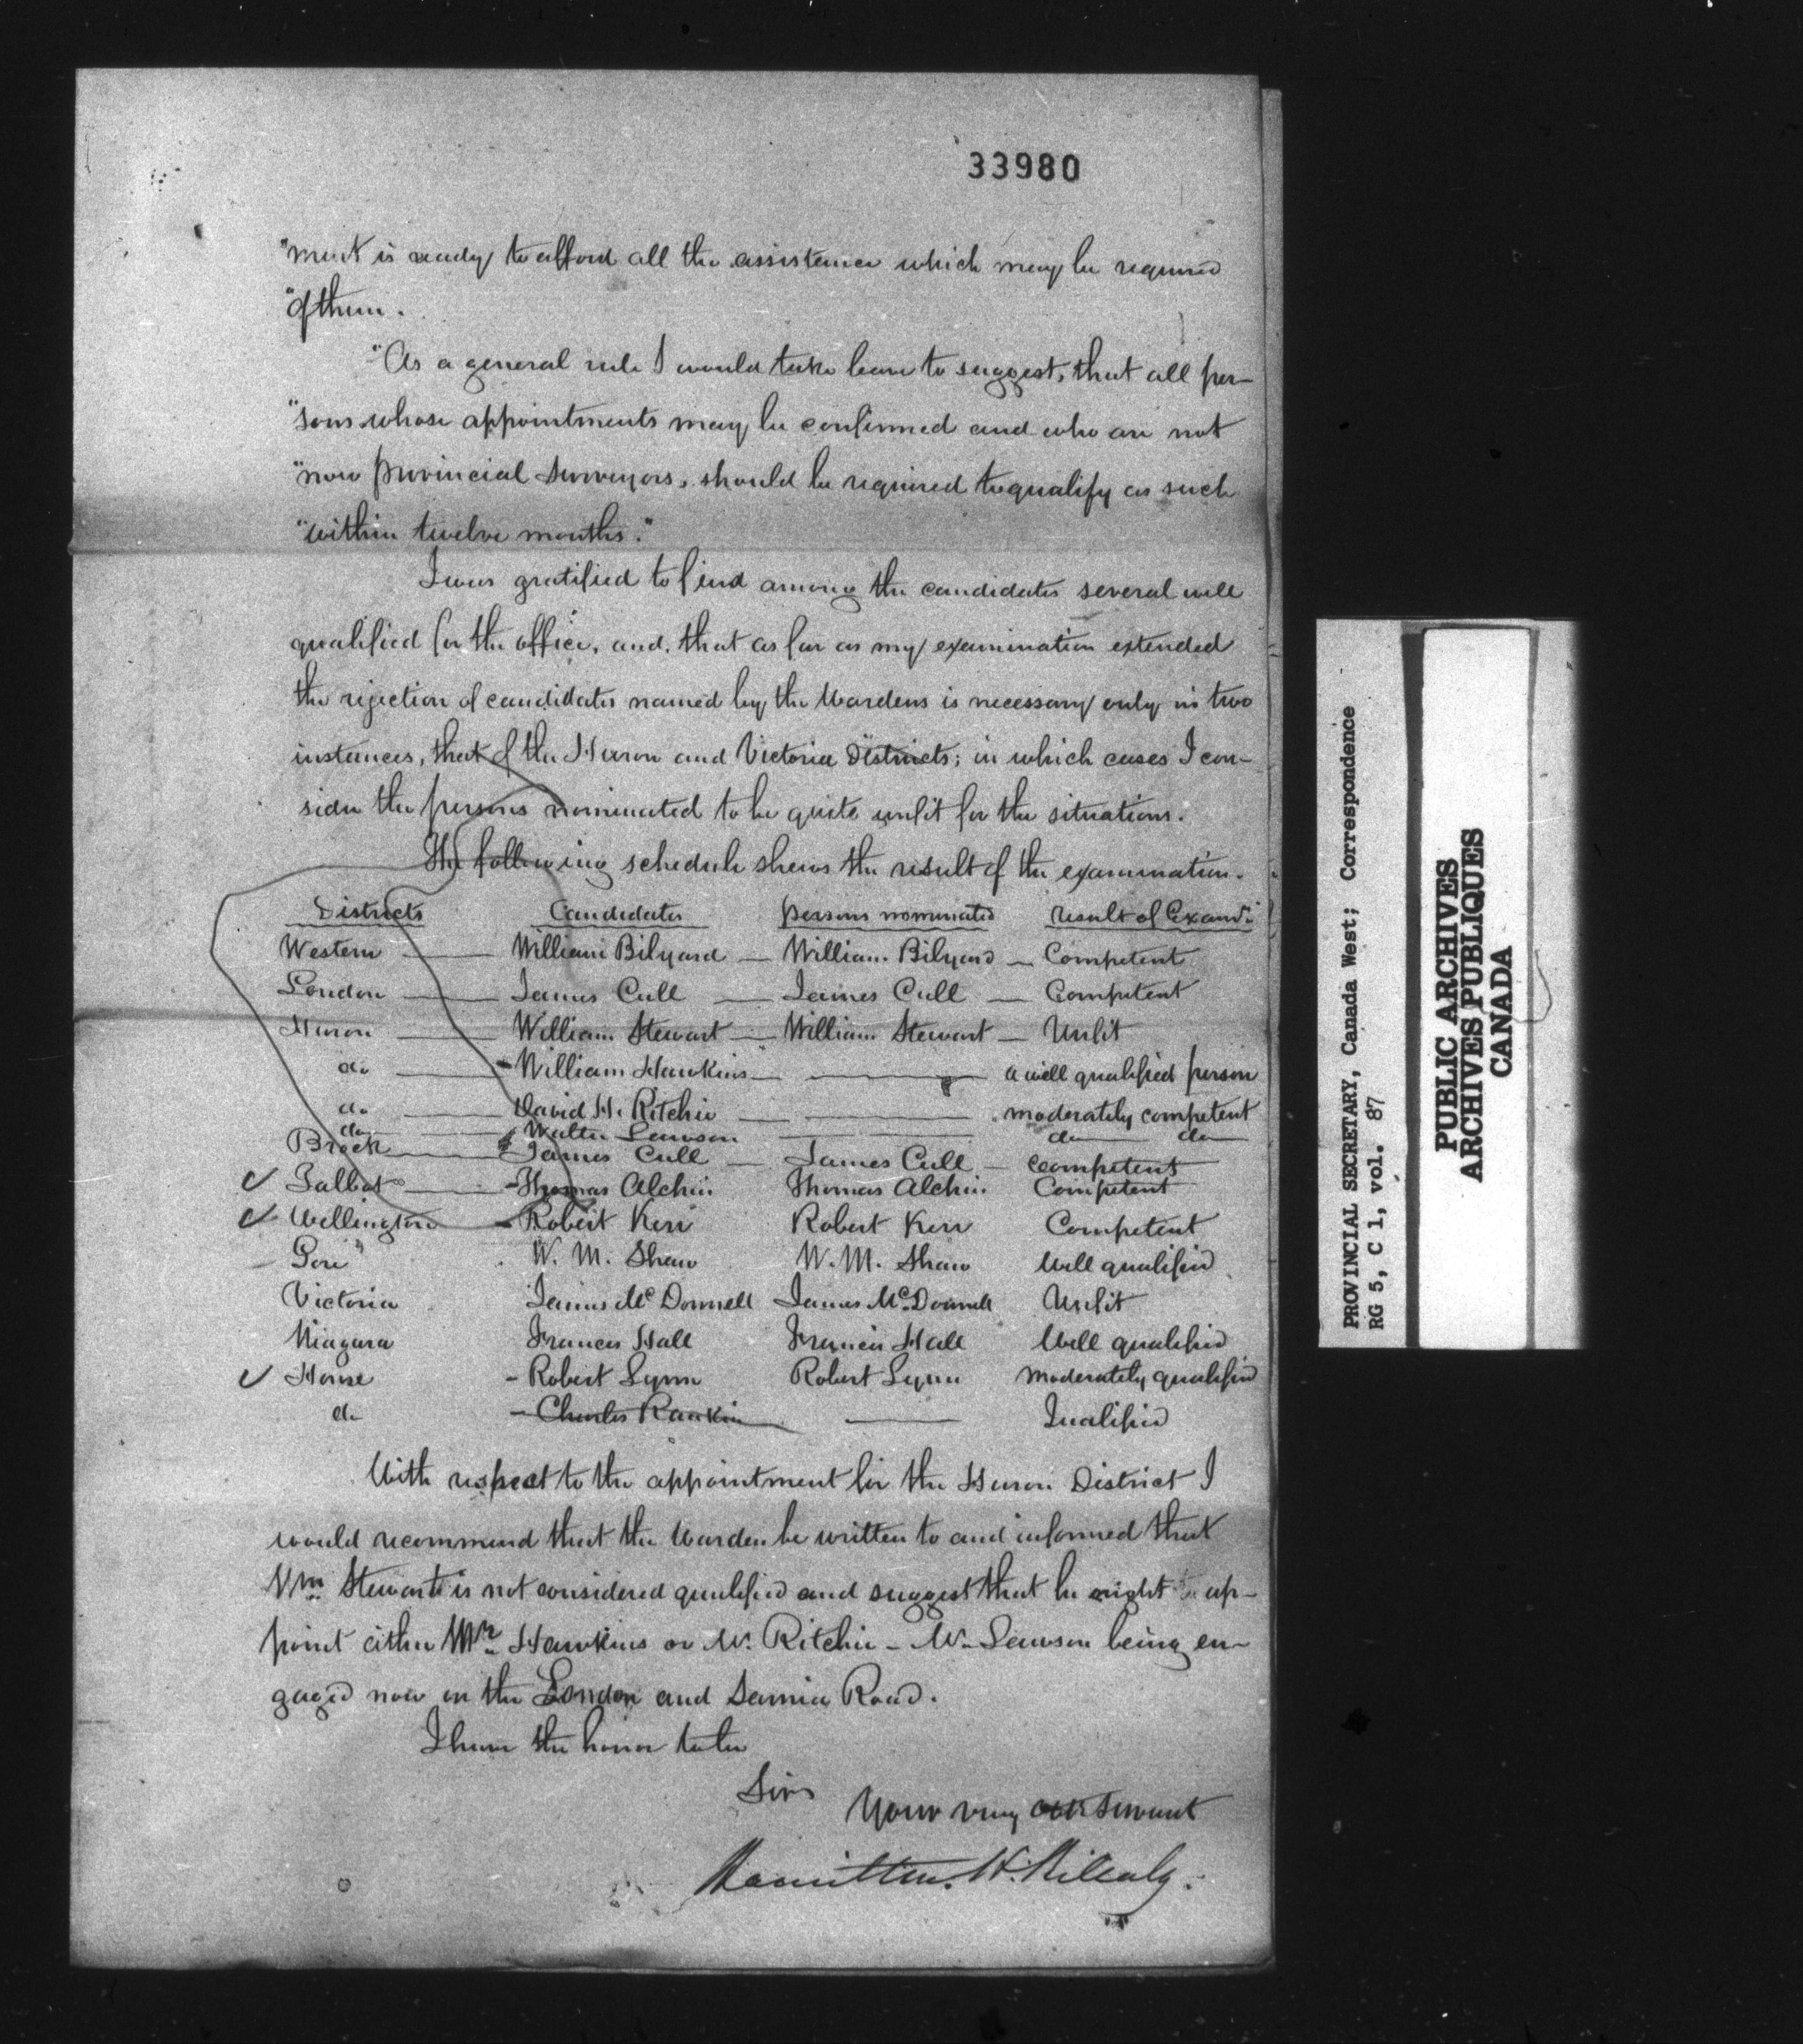 33980
"ment is ready to afford all the assistance which may be required
"of them.
"As a general rule I would take leave to suggest, that all per-
"sons whose appointments may be confirmed and who are not
"now provincial Surveyors, should be required to qualify as such
"within twelve months."
I was gratified to find among the candidates several well
qualified for the office, and, that as far as my examination extended
the rejection of candidates named by the Wardens is necessary only in two
instances, that of the Huron and Victoria Districts; in which cases I con-
sider the persons nominated to be quite unfit for the situations.
The following schedule shews the result of the examination.
Districts Candidates persons nominated result of Examn.
Western — William Bilyard — William Bilyard — Competent
London — James Cull — James Cull — Competent
Huron — William Stewart — William Stewart — Unfit
do — William Hawkins — — a well qualified person
do — David H. Ritchie — — moderately competent
do — Walter Lawson — do do
Brock — James Cull — James Cull — Competent
Talbot — Thomas Alchin Thomas Alchin Competent
Wellington — Robert Kerr Robert Kerr Competent
Gore W. M. Shaw W. M. Shaw Well qualified
Victoria James McDonnell James McDonnell Unfit
Niagara Francis Hall Francis Hall Well qualified
Home - Robert Lynn Robert Lynn moderately qualified
do - Charles Rankin — Qualified
With respect to the appointment for the Huron District I
would recommend that the Warden be written to and informed that
Wm Stewart is not considered qualified and suggest that he might ap-
point either Mr Hawkins or Mr. Ritchie - Mr Lawson being en-
gaged now on the London and Sarnia Road.
I have the honor to be
Sir
Your very obt Servant
Hamilton. H. Killaly.
PROVINCIAL SECRETARY, Canada West; Correspondence
RG 5, C 1, vol. 87
PUBLIC ARCHIVES
ARCHIVES PUBLIQUES
CANADA